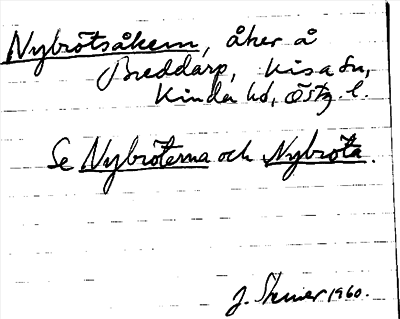 Nybrötsåkern, åker å
Breddarp, Kisa sn,
Kinda hd, Östg. l.
Se Nybröterna och Nybröta.
J. 1960.